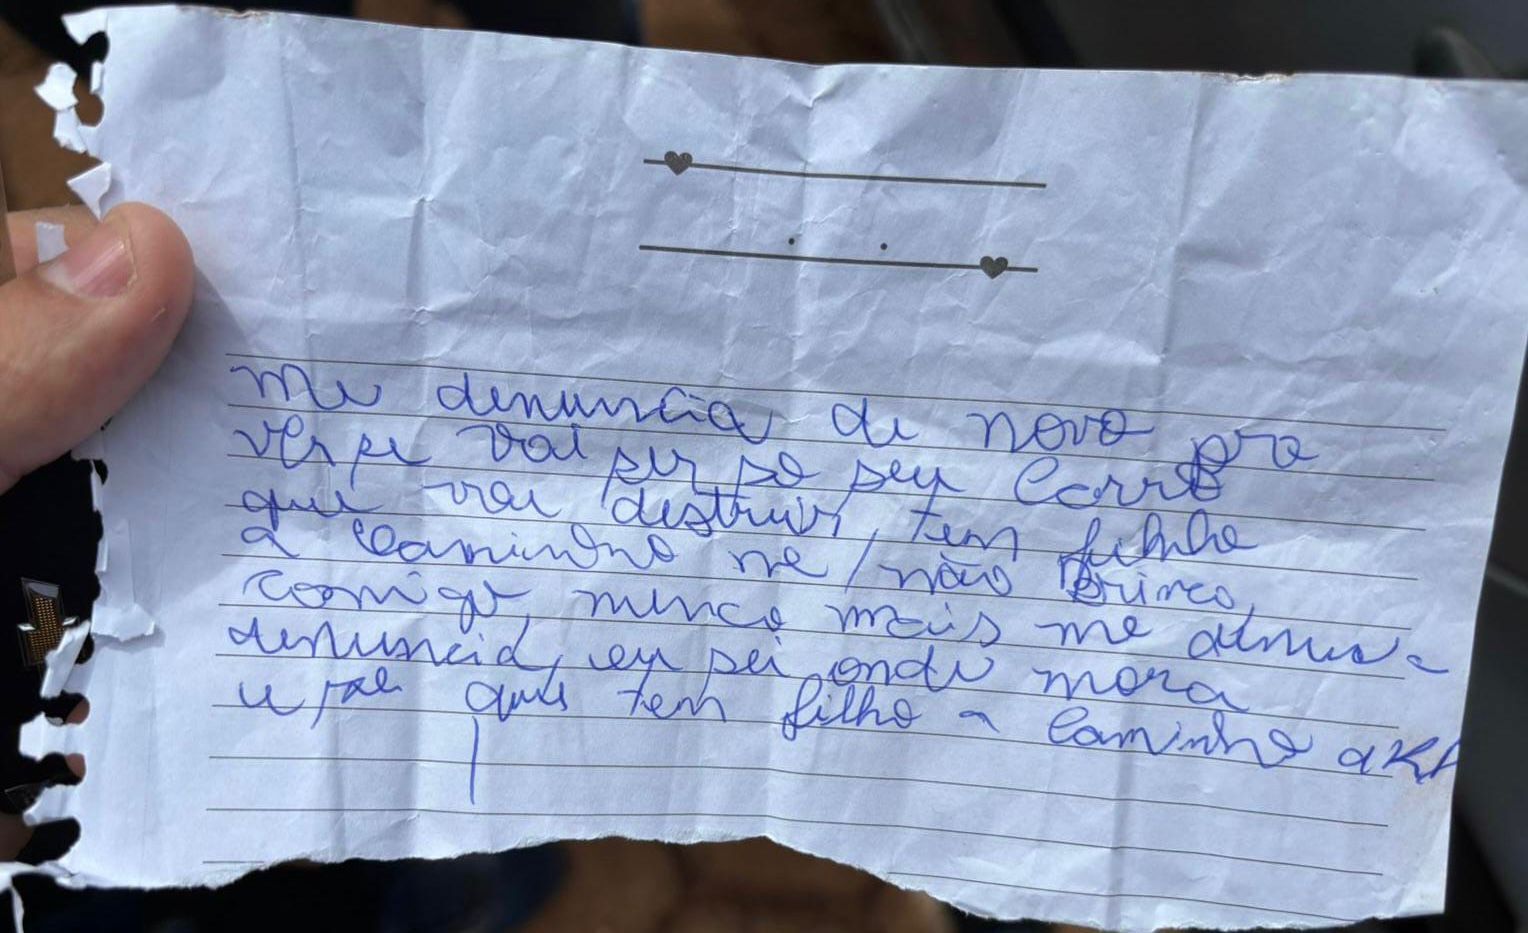 Me denuncia de novo pra
ver se vai ser so seu carro
que vai destruir, tem filho
a caminho né, não Brinca
comigo, nunca mais me
denuncia, eu sei onde mora
e sei que tem filho a caminho